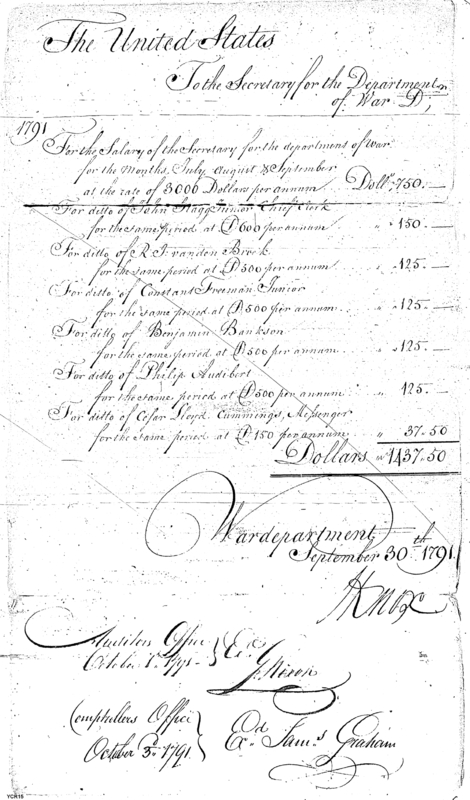 The United States
To the Secretary for the Department
of War Dr,
1791
For the Salary of the Secretary for the department of War
for the Months, July, August & September
at the rate of 3000 Dollars per annum Dollrs 750.—
For ditto of John Stagg Junior Chief Clerk
for the same period at D 600 per annum " 150.—
For ditto of R. J. vanden Brock
for the same period at D 500 per annum " 125.—
For ditto of Constant Freeman Junior
for the same period at D 500 per annum " 125.—
For ditto of Benjamin Bankson
for the same period at D 500 per annum " 125.—
For ditto of Philip Audibert
for the same period at D 500 per annum " 125.—
For ditto of Cesar Lloyd Cummings, Messenger
for the same period at D 150 per annum " 37.50
Dollars 1437.50
War department
September 30th 1791.
HKnox
Auditors Office
October 1st 1791 Exd
Nixon
Comptrollers Office
October 3d 1791 Exd Jams Graham
YCR16